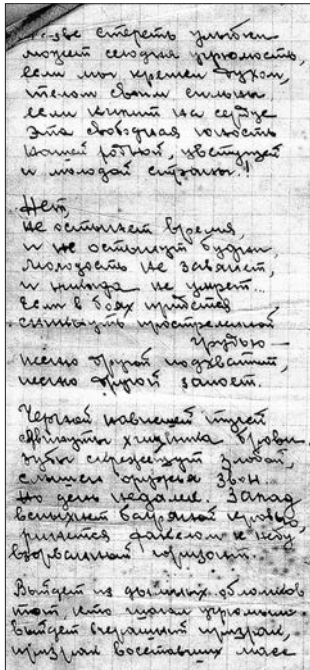 Разве стереть улыбки
может сегодня угрюмость,
если мы крепки духом,
телом своим сильны
если кипит на сердце
эта свободная юность
нашей родной, цветущей
и молодой страны!
Нет,
не остынет время,
и не остынут будни,
молодость не завянет,
и никогда не умрет...
Если в боях придется
сникнуть простреленной
грудью —
песню другой подхватит,
песню другой запоет.
Черной нависшей тучей
сдвинуты хищника брови.
Зубы скрежещут злобой,
слышен оружья звон.
Но день недалек. Запад
вспыхнет багряной кровью,
ринется факелом к небу
взорванный горизонт.
Выйдет из дымных обломков
тот, кто шагал угрюмым
выйдет вчерашний призрак,
призрак восставших масс